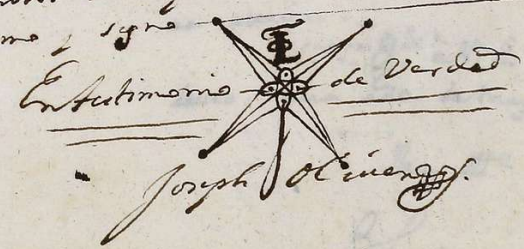 mo y signo
En testimonio de Verdad
Joseph Olivenza